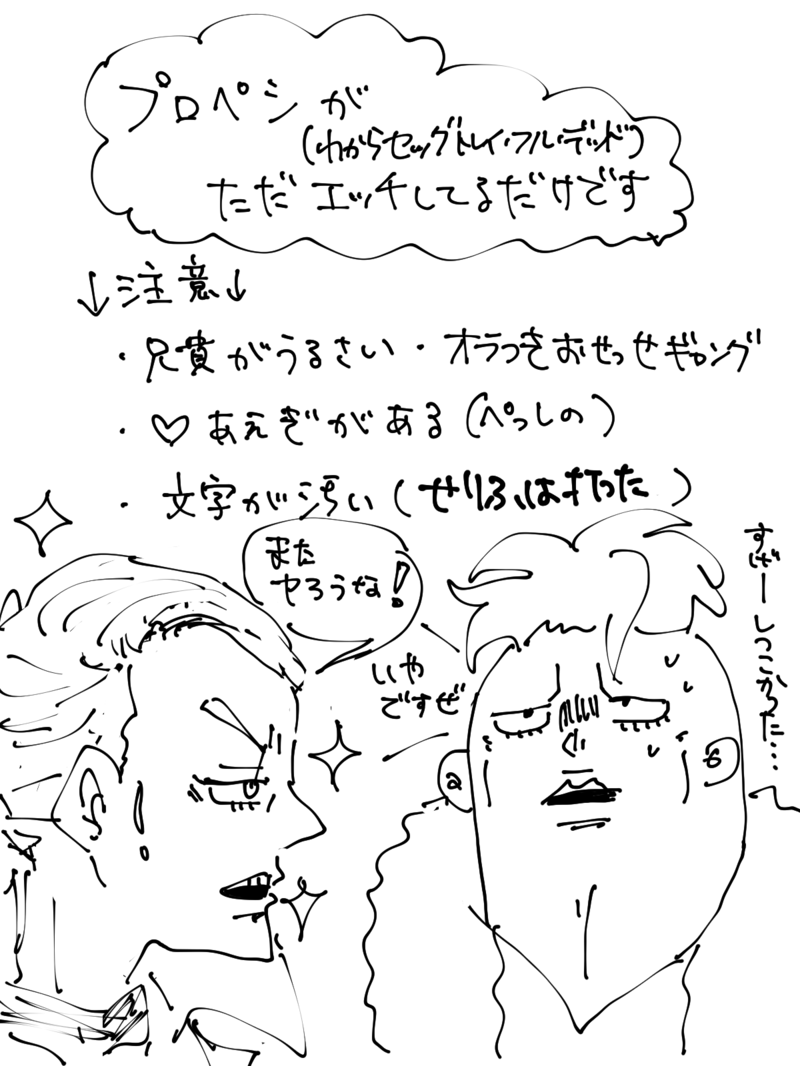 プロペシが
(わからセッグトレイ・フル・デッド)
ただエッチしてるだけです
↓注意↓
・兄貴がうるさい・オラつきおせっせギャング
・♡あえぎがある(ぺっしの)
・文字が汚い(せりふは打った)
また
ヤろうな!
いや
ですぜ
すげーしつこかった…